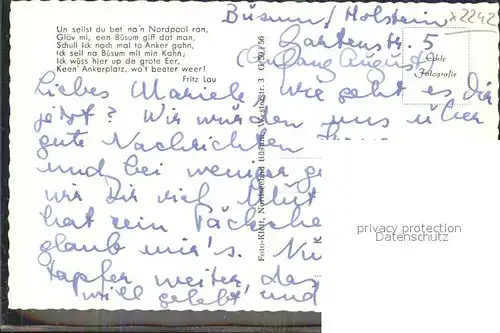 Un seilst du bet na'n Nordpool ran,
Glöv mi, een Büsum giff dat man,
Schull ick noch mal to Anker gahn,
Ick seil na Büsum mit min Kahn;
Ick wüss hier up de grote Eer,
Keen' Ankerplatz, wo't beeter weer!
Fritz Lau
Büsum / Holstein
x2242
Gartenstr. 5
Anfang August
Echte
Fotografie
Liebes Mariele, wie geht es Dir
jetzt? Wir würden uns über
gute Nachrichten
und bei weniger
wir Dir viel Mut
hat ein Päckche
glaub mir's. Nu
tapfer weiter, das
will gelebt und
Foto-Klett, Nordseebad Büsum, Westtstr. 3
privacy protection
Datenschutz